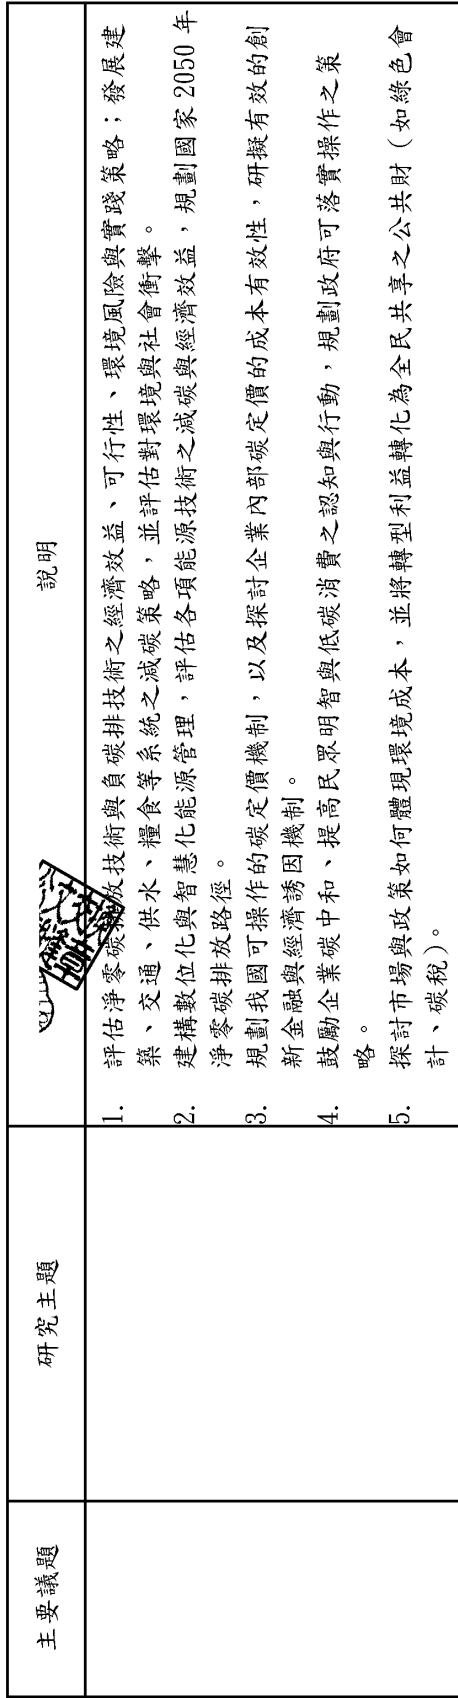 主要議題
研究主題
說明
1. 評估淨零碳排放技術與負碳排技術之經濟效益、可行性、環境風險與實踐策略；發展建
築、交通、供水、糧食等系統之減碳策略，並評估對環境與社會衝擊。
2. 建構數位化與智慧化能源管理，評估各項能源技術之減碳與經濟效益，規劃國家 2050 年
淨零碳排放路徑。
3. 規劃我國可操作的碳定價機制，以及探討企業內部碳定價的成本有效性，研擬有效的創
新金融與經濟誘因機制。
4. 鼓勵企業碳中和、提高民眾明智與低碳消費之認知與行動，規劃政府可落實操作之策
略。
5. 探討市場與政策如何體現環境成本，並將轉型利益轉化為全民共享之公共財（如綠色會
計、碳稅）。